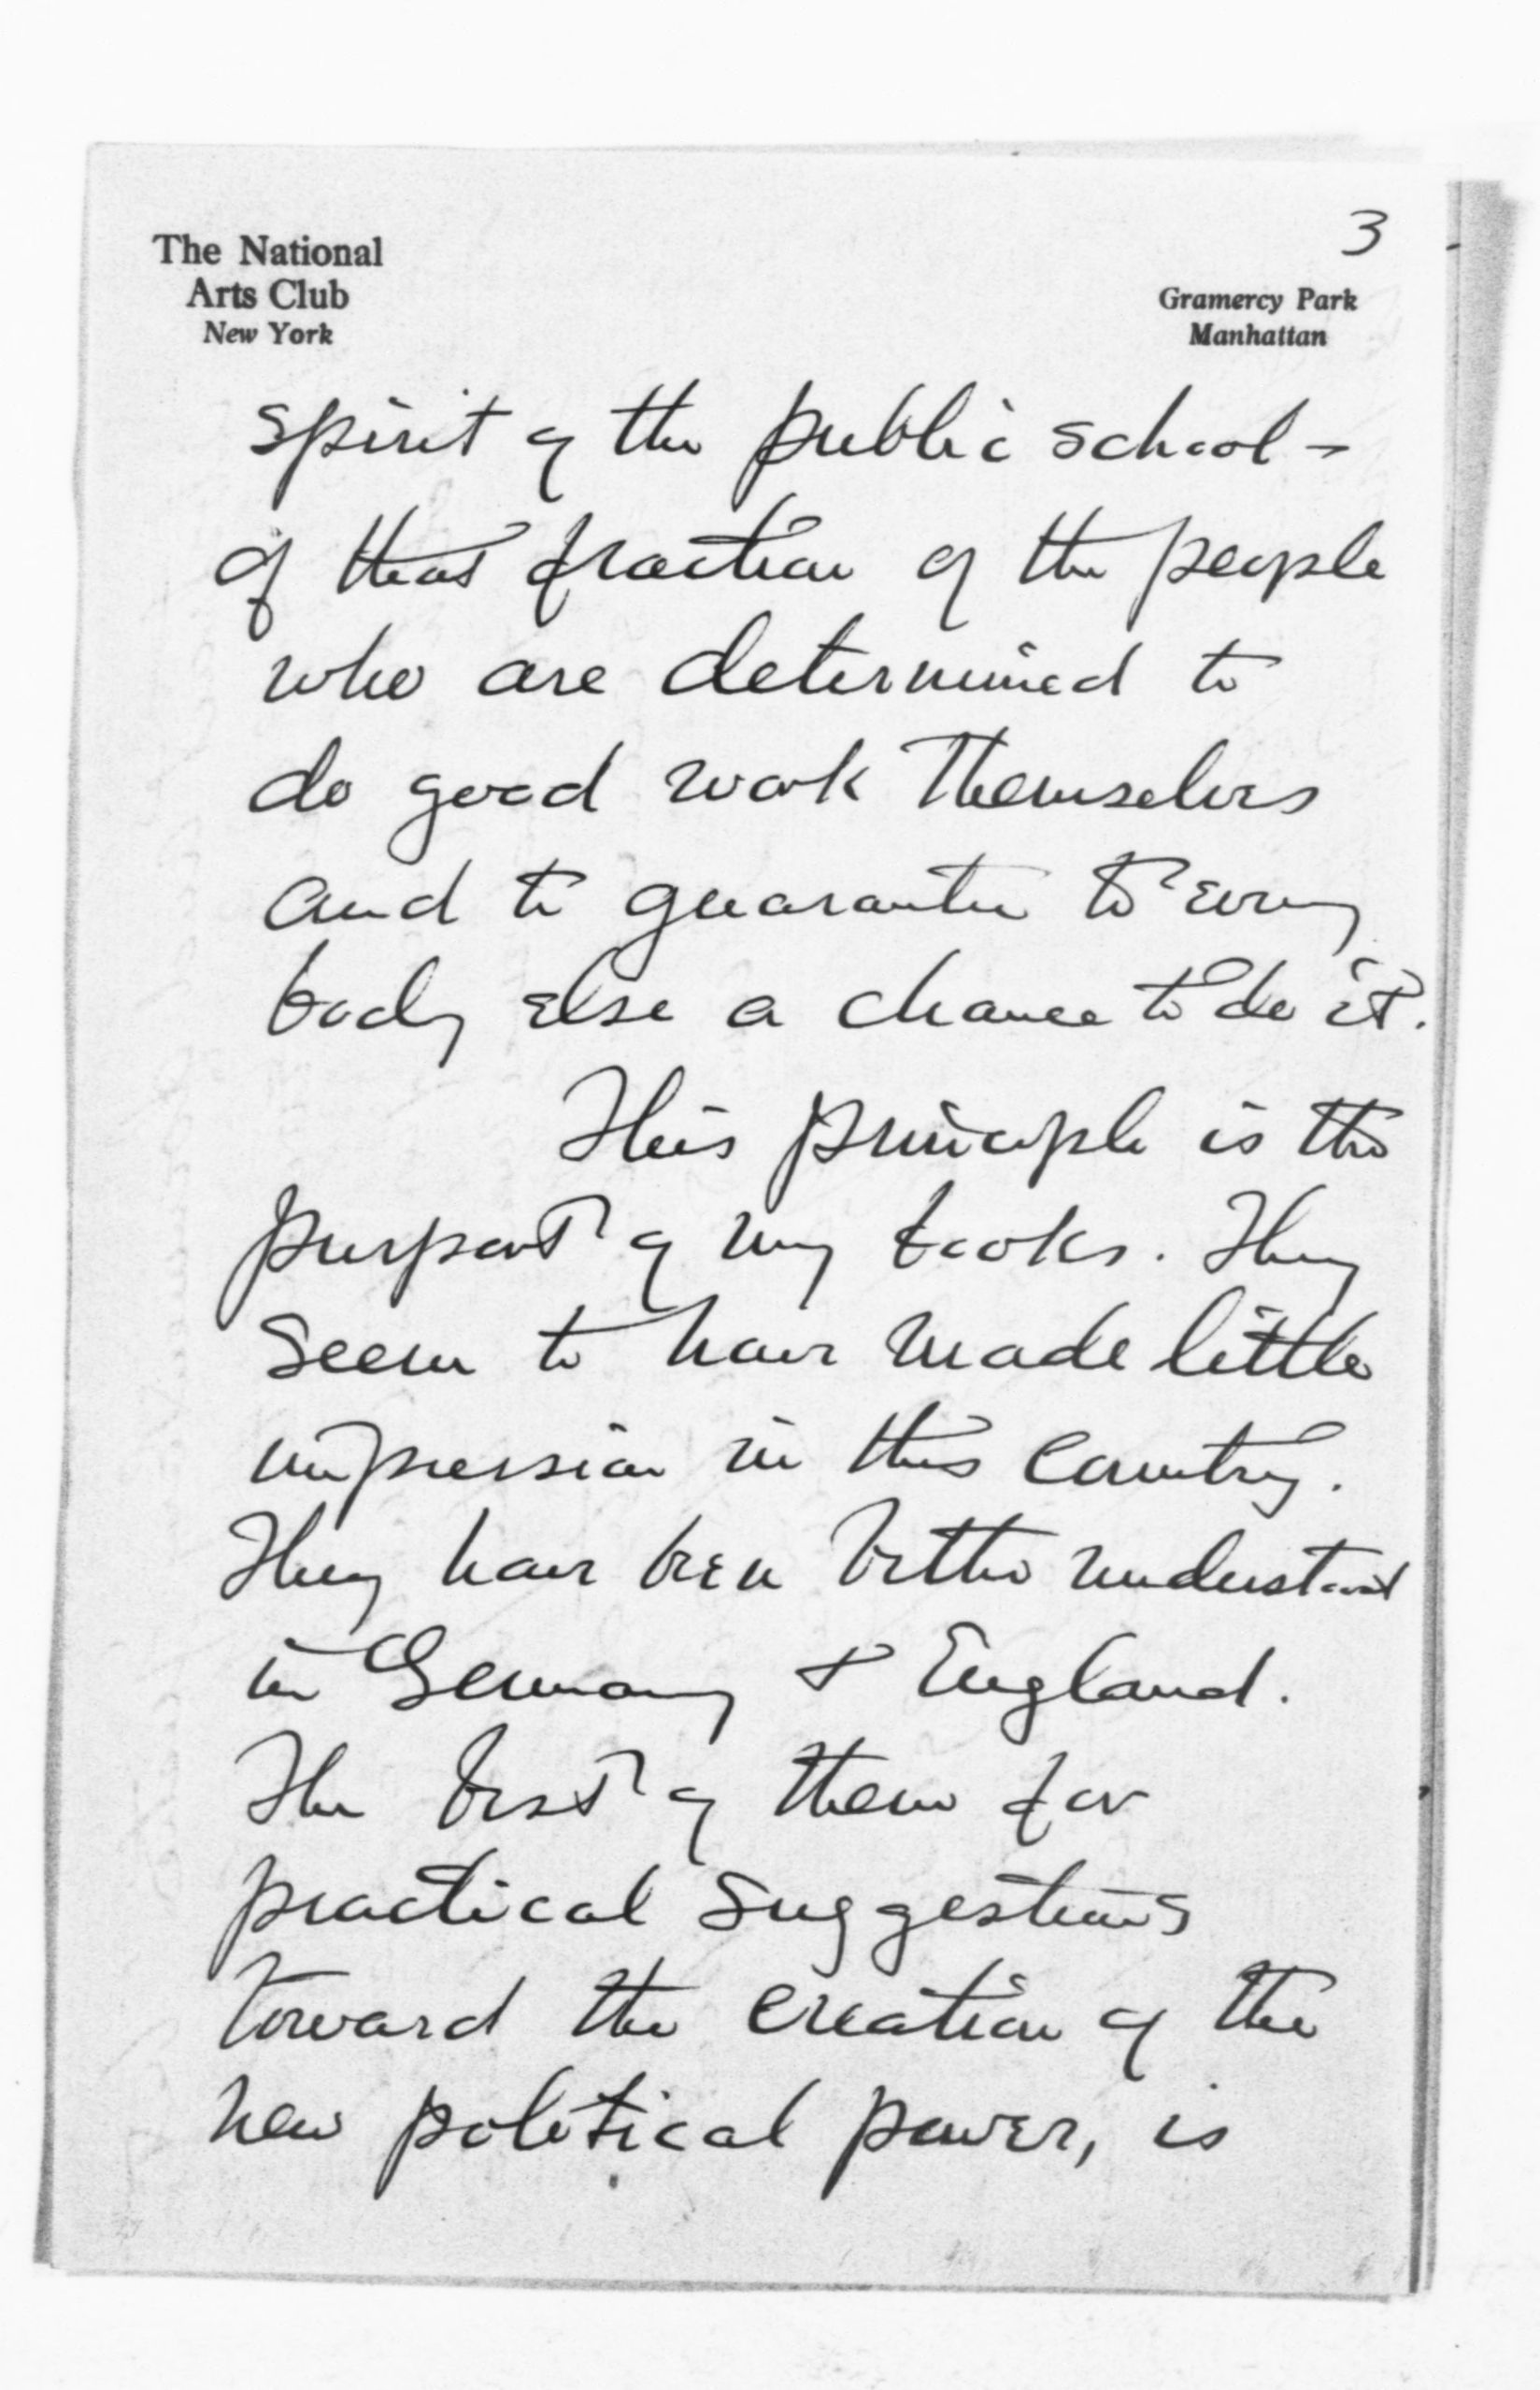 The National
Arts Club
New York
3
Gramercy Park
Manhattan
spirit of the public school -
of that fraction of the people
who are determined to
do good work themselves
and to guarantee to every
body else a chance to do it.
This principle is the
purport of my books. They
seem to have made little
impression in this country.
They have been better understood
in Germany & England.
The best of them for
practical suggestions
toward the creation of the
new political power, is